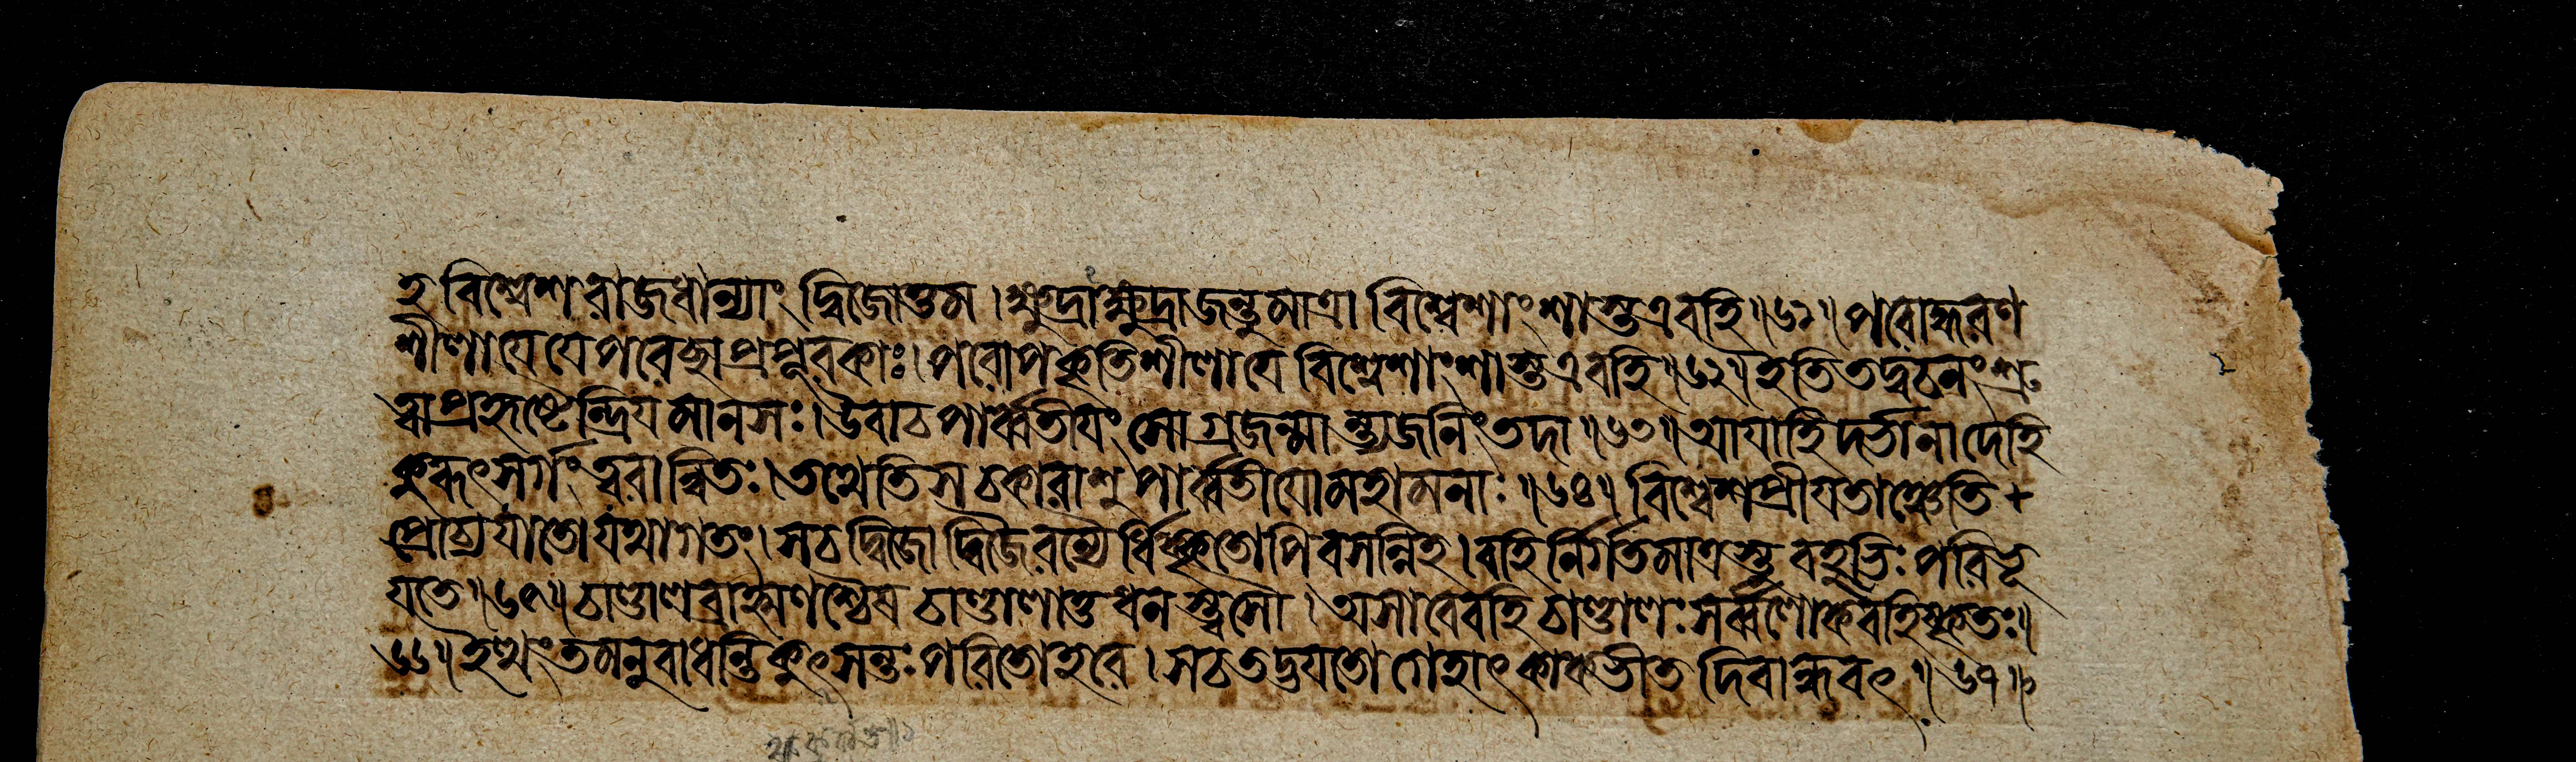 হ বিশ্বেশরাজধান্যাং দ্বিজোত্তম । ক্ষুদ্রাক্ষুদ্রা জন্তুমাত্রা বিশ্বেশাংশাস্তু এবহি ॥৬১॥ পরোদ্ধরণ
শীলা যে যে পরেচ্ছাপ্রপূরকাঃ। পরোপকৃতিশীলা যে বিশ্বেশাংশাস্তু এবহি ॥৬২॥ ইতি তদ্বচনং শ্রু
ত্বা প্রহৃষ্টেন্দ্রিয়মানসঃ। উবাচ পার্ব্বতীয়ং সোগ্রজন্মান্ত্যজনিং তদা ॥৬৩॥ আয়াহি দর্ভানাদেহি
কুরূৎসর্গং ত্বরান্বিতঃ। তথেতি স চকারাশু পার্ব্বতীয়ো মহামনাঃ ॥৬৪॥ বিশ্বেশপ্রীয়তাঞ্চেতি +
প্রোচ্য যাতো যথাগতং। স চ দ্বিজো দ্বিজৈরন্যৈর্ধিক্কৃতোপি বসন্নিহ। বহির্নির্গতমাত্রস্তু বহুভিঃ পরিভূ
যতে ॥৬৫॥ চাণ্ডালব্রাহ্মণশ্চৈষ চাণ্ডালাত্তধনস্ত্বসৌ । অসাবেবহি চাণ্ডালঃ সর্ব্বলোকবহিষ্কৃতঃ॥
৬৬॥ ইত্থং তমনুবাধন্তি কুৎসন্তঃ পরিতো হরে । স চ তদ্ভয়তো গেহাৎ কাকভীতদিবান্ধবৎ ॥ ৬৭ ॥